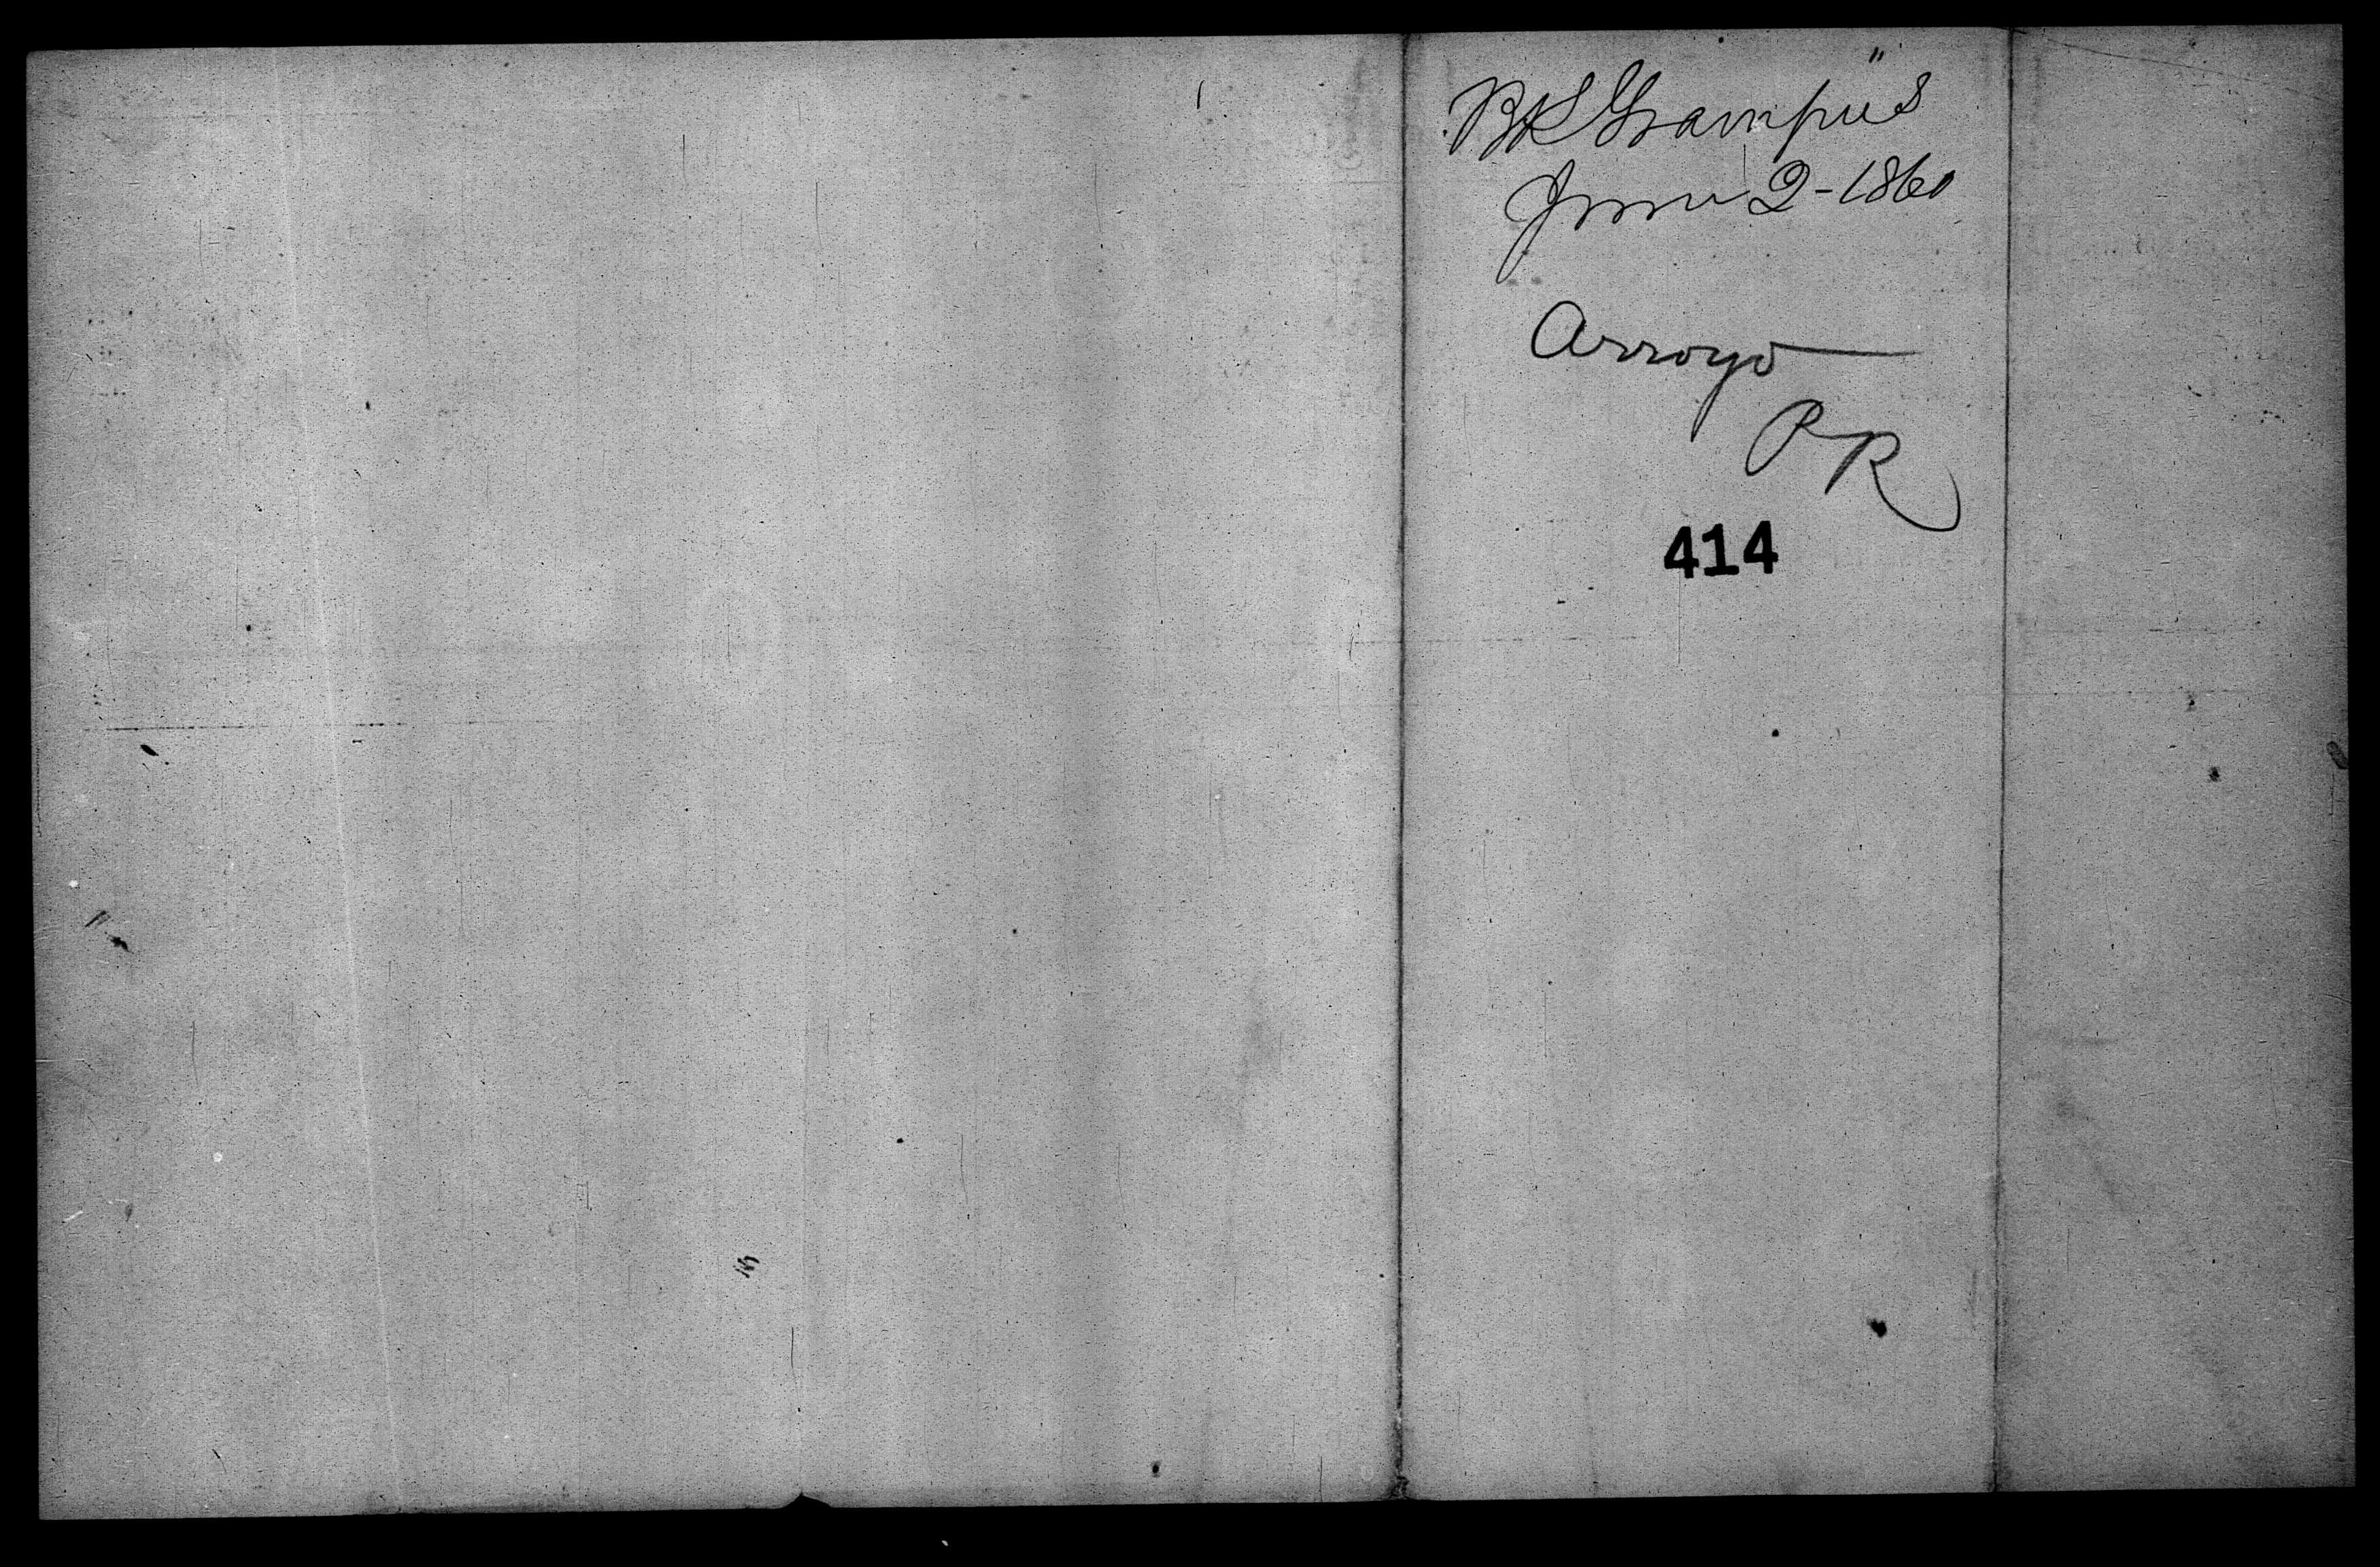 Bk Grampus"
June 2-1860
Arroyo
PR
414